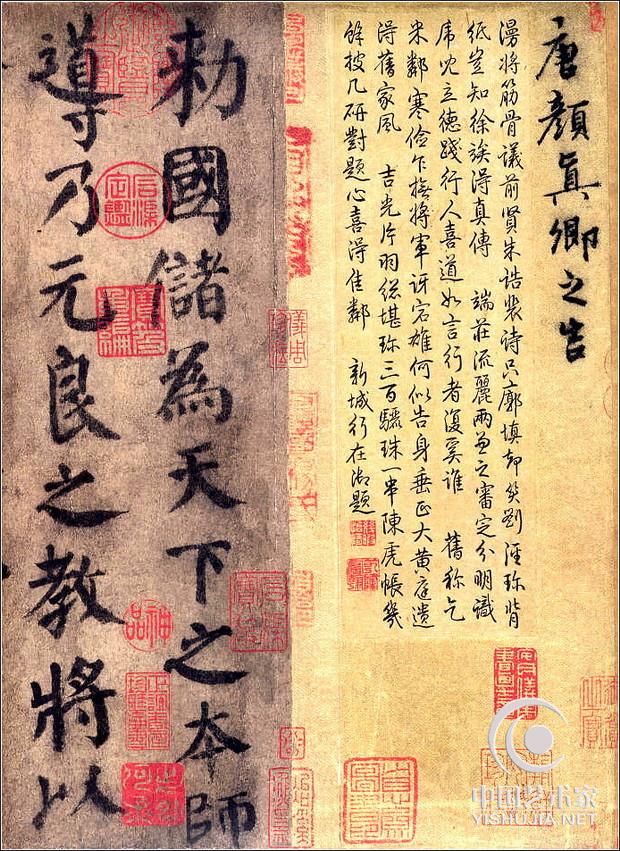 唐顏真卿之告
漫將筋骨議前賢朱誥裴詩只廓填却笑劉涇珍背
紙豈知徐得真傳 端莊流麗兩兼之審定分明識
立德踐行人喜道如言行者復奚誰 舊稱乞
米鄰寒儉乍將軍訝宕雄何似告身垂正大黃庭遺
得舊家風 吉光片羽總堪珍三百驪珠一串陳虎帳幾
餘披几研對題心喜得佳鄰 新城行在御題
勅國儲為天下之本師
導乃元良之教將以
神品
中国艺术家
YISHUJIA.NET